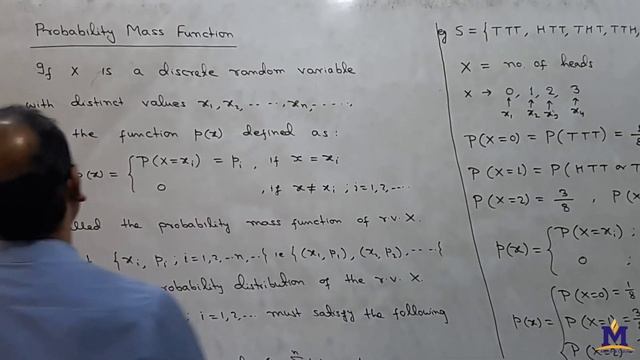 Probability Mass Function
If X is a discrete random variable
with distinct values x₁, x₂, ....., xₙ, .....,
the function p(x) defined as :
p(x) = { P(X=xᵢ) = pᵢ , if x = xᵢ
0 , if x ≠ xᵢ ; i=1,2,...
called the probability mass function of r.v. X.
{xᵢ, pᵢ ; i=1,2,..n,..} ie {(x₁, p₁), (x₂, p₂), ....}
probability distribution of the r.v. X.
; i=1,2,... must satisfy the following
eg S = {TTT, HTT, THT, TTH,
X = no. of heads
X → 0, 1, 2, 3
x₁ x₂ x₃ x₄
P(X=0) = P(TTT) = 1/8
P(X=1) = P(HTT or T
P(X=2) = 3/8 , P(X
p(x) = { P(X=xᵢ) ;
0 ;
p(x) = { P(X=0) = 1/8
P(X=1) = 3/
P(X=2) =
M